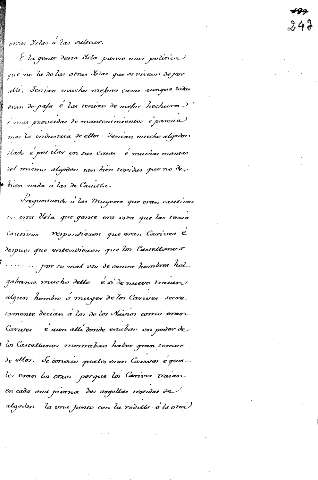 247
otras Islas á las vistas.
E la gente desta Isla parece mas politica
que no la de las otras Islas que se vieron de pa
alli. Tenian mucho mejores casas aunque todas
eran de paja é las tenian de mejor hechura
é mas proveidas de mantenimientos é parecia
mas la industria de ellos. Tenian mucho algodon
hilado é por hilar en sus casas é muchas mantas
del mismo algodon tan bien texidas que no de-
bian nada á las de Castilla.
Preguntando á las Mugeres que eran cautivas
en esta Isla que gente era esta que las tenia
cautivas respondieron que eran Carives é
despues que entendieron que los Castellanos
........ por su mal uso de comer hombres hol
gabanse mucho dello é si de nuevo traian
algun hombre ó muger de los Carives secre
tamente decian á los de los Navios como eran
Carives é aun alli donde estaban en poder de
los Castellanos mostraban haber gran temor
de ellos. Se conocia qual era Carives é qua-
les eran los otros porque los Carives traian
en cada una pierna dos argollas texidas de
algodon la una junto con la rodilla é la otra